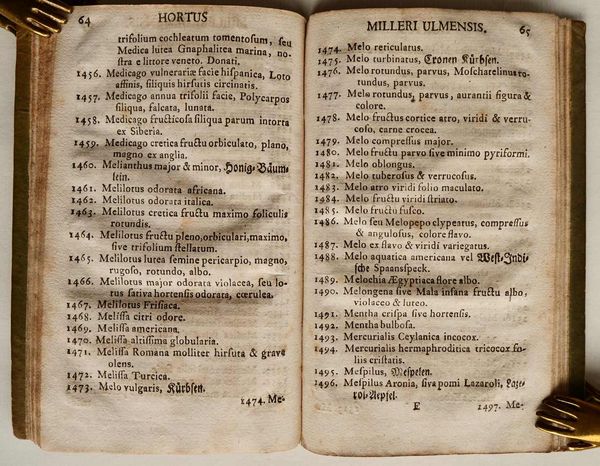 64 HORTUS
trifolium cochleatum tomentosum, seu
Medica lutea Gnaphalitea marina, no-
stra e littore veneto. Donati.
1456. Medicago vulnerariæ facie hispanica, Loto
affinis, filiquis hirsutis circinatis.
1457. Medicago annua trifolii facie, Polycarpos
siliqua, falcata, lunata.
1458. Medicago fructicosa siliqua parum intorta
ex Siberia.
1459. Medicago cretica fructu orbiculato, plano,
magno ex anglia.
1460. Melianthus major & minor, Honig-Bäum-
lein.
1461. Melilotus odorata africana.
1462. Melilotus odorata italica.
1463. Melilotus cretica fructu maximo foliculis
rotundis.
1464. Melilotus fructu pleno, orbiculari, maximo,
sive trifolium stellatum.
1465. Melilotus lutea semine pericarpio, magno,
rugoso, rotundo, albo.
1466. Melilotus major odorata violacea, seu lo-
tus sativa hortensis odorata, cœrulea.
1467. Melilotus Frisiaca.
1468. Melissa citri odore.
1469. Melissa americana.
1470. Melissa altissima globularia.
1471. Melissa Romana molliter hirsuta & grave
olens.
1472. Melissa Turcica.
1473. Melo vulgaris, Kürbsen.
1474. Me-
MILLERI ULMENSIS. 65
1474. Melo reticularus.
1475. Melo turbinatus, Cronen Kürbsen.
1476. Melo rotundus, parvus, Moscharelinus ro-
tundus, parvus.
1477. Melo rotundus, parvus, aurantii figura &
colore.
1478. Melo fructus cortice atro, viridi & verru-
coso, carne crocea.
1479. Melo compressus major.
1480. Melo fructu parvo sive minimo pyriformi.
1481. Melo oblongus.
1482. Melo tuberosus & verrucosus.
1483. Melo atro viridi folio maculato.
1484. Melo fructu viridi striato.
1485. Melo fructu fusco.
1486. Melo seu Melopepo clypeatus, compressus
& angulosus, colore flavo.
1487. Melo ex flavo & viridi variegatus.
1488. Melo aquatica americana vel West-Indi-
sche Spaanspeck.
1489. Melochia Ægyptiaca flore albo.
1490. Melongena sive Mala insana fructu albo,
violaceo & luteo.
1491. Mentha crispa sive hortensis.
1492. Mentha bulbosa.
1493. Mercurialis Ceylanica incocox.
1494. Mercurialis hermaphroditica tricocox fo-
liis cristatis.
1495. Mespilus, Mespelen.
1496. Mespilus Aronia, siva pomi Lazaroli, Laze-
rol-Aepfel.
E 1497. Me-